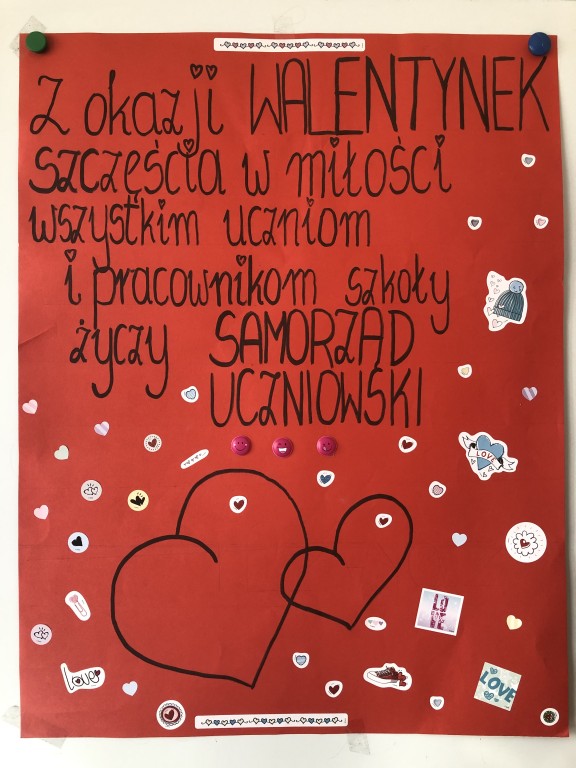 Z okazji WALENTYNEK
SZCZĘŚCIA w miłości
wszystkim uczniom
i pracownikom szkoły
życzy SAMORZĄD
UCZNIOWSKI
LOVE
LO
VE
Love
LOVE